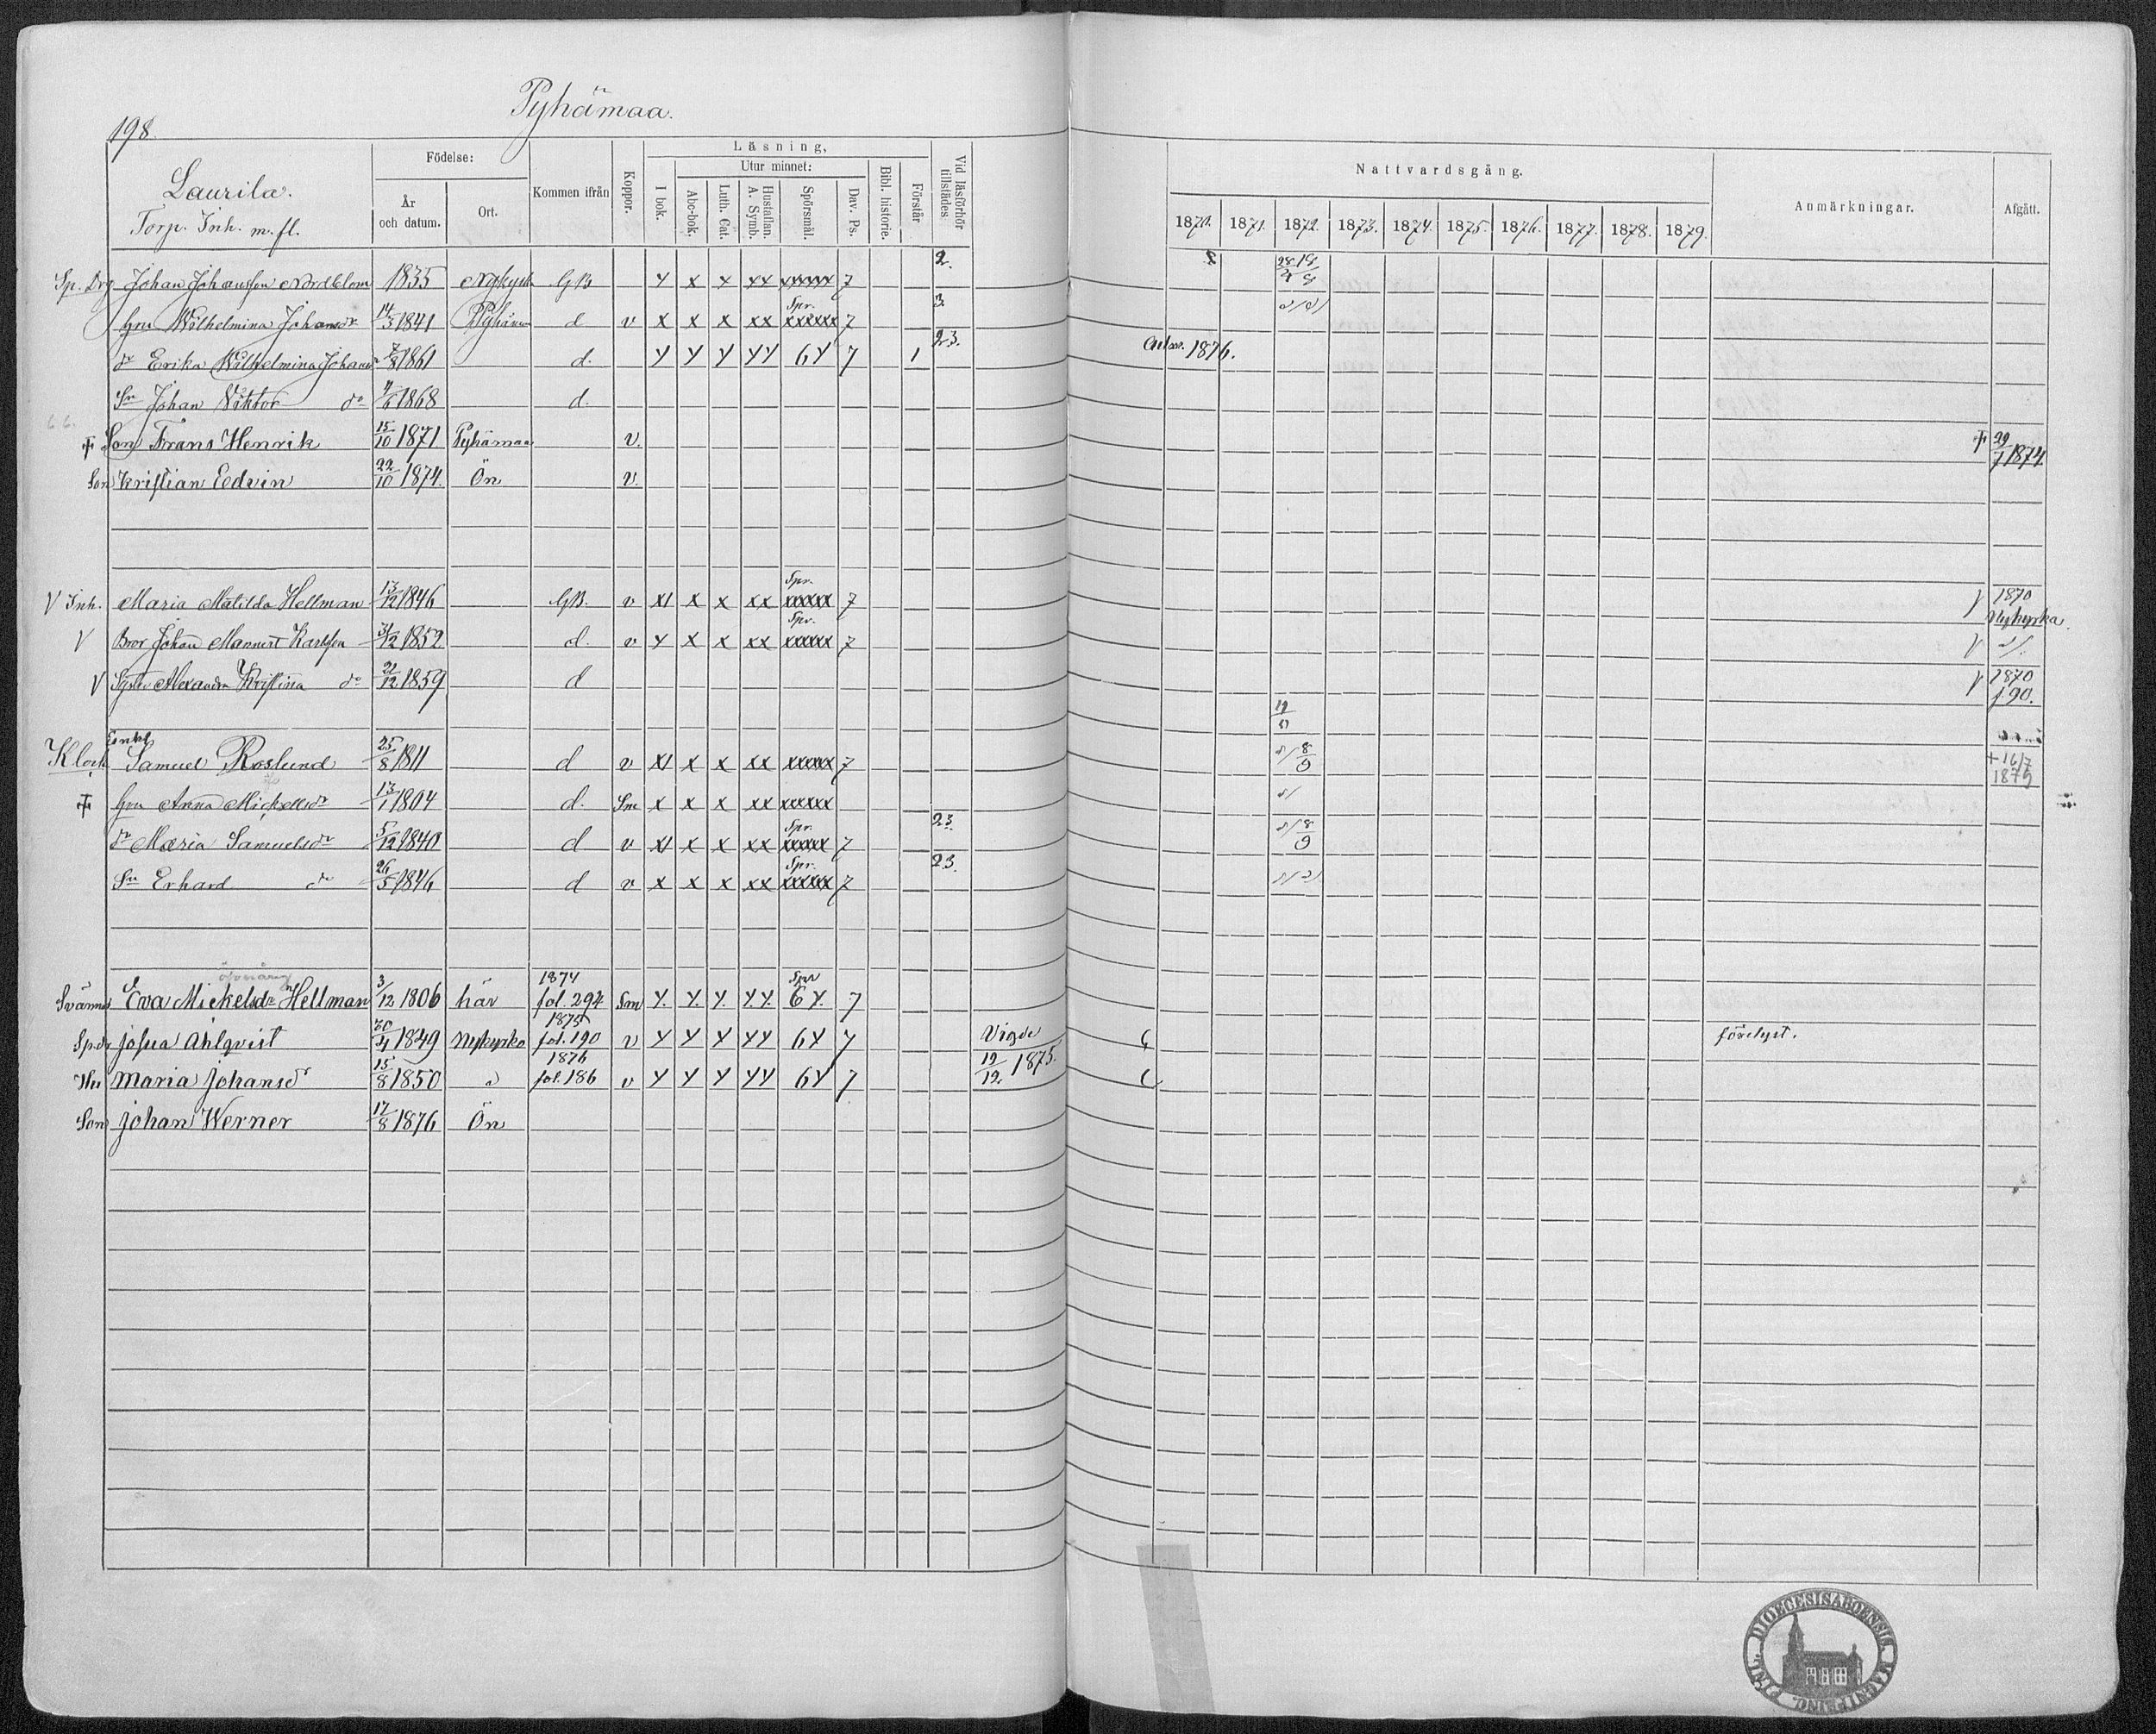 Pyhämaa.
198.
Laurila.
Torp. Inh. m. fl.
Födelse:
År och datum.
Ort.
Kommen ifrån
Koppor.
Läsning,
I bok.
Utur minnet:
Abc-bok.
Luth. Cat.
Hustaflan. A. Symb.
Spörsmål.
Dav. Ps.
Bibl. historie.
Förstår
Vid läsförhör tillstädes.
Nattvardsgång.
1870. 1871. 1872. 1873. 1874. 1875. 1876. 1877. 1878. 1879.
Anmärkningar.
Afgått.
Johan Johansson Nordblom 1835 GB y x x xx xxxxxx 7 2.
Hru Wilhelmina Johansdr 14/5 1841 Pyhämaa d v x x x xx Spr. xxxxxx 7 3
dr Erika Wilhelmina Johans 7/8 1861 d. y y y yy 6y 7 1 23. 1876.
Sn Johan Viktor do 1868 d.
Son Frans Henrik 15/10 1871 Pyhämaa v. 29/7 1874
Son Kristian Edvin 22/10 1874. Ön v.
V Inh. Maria Matilda Hellman 13/12 1846 GB. v x x xx Spr. xxxxxx 7 V 1870 Nykyrka.
V Bror Johan Mannert Karlsson 31/12 1852 d. v y x x xx Spr. xxxxxx 7 V
V Syster Alexandra Kristina do 21/12 1859 d V 1870 f. 90.
Klock Enkl Samuel Roslund 25/8 1811 d v x x xx xxxxxx 7 8/9 + 16/7 1879
Hru Anna Mickelsdr 13/1 1804 d. Sm x x x xx xxxxxx
dr Maria Samuelsdr 5/12 1840 d v x x xx Spr. xxxxxx 7 23. 8/9
Sn Erhard do 26/5 1846 d v x x x xx Spr. xxxxxx 7 23.
Eva Mickelsdr Hellman 3/12 1806 här 1874 fol. 294 Sm y. y. y. y.y. Spr 6 y. 7
Josua Ahlqvist 1849 Nykyrko 1875 fol. 190 v y y y yy 6y 7 Vigde förelyst.
Hu Maria Johansdr 15/8 1850 1876 fol. 186 v y y y yy 6y 7 19/12. 1875.
Son Johan Werner 17/8 1876 Ön
DIOECESIS ABOENSIS